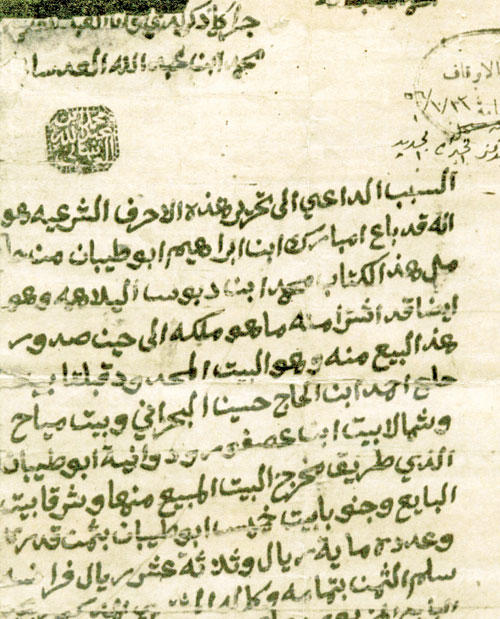 جرا كما ذكر لدي وانا العبد
محمد ابن عبد الله العدساني
الاوقاف
السبب الداعي الى تحرير هذه الاحرف الشرعيه هو
انه قد باع امبارك ابن ابراهيم ابو طيبان من
هذ الكتاب محمد ابن دبوس البلاهه وهو
ايضا قد اشترا منه ما هو ملكه الى حين صدور
هذ البيع منه وهو البيت المحدود قبلتا بيت
حاج احمد ابن الحاج حسين البحراني وبيت مياح
وشمالا بيت ابن عصفور ودوانية ابو طيبان
الذي طريق مخرج البيت المبيع منها وشرقا بيت
البايع وجنوبا بيت خميس ابو طيبان بثمن قدره
وعدده ماية ريال وثلاثة عشر ريال فرانسه
سلم الثمن بتمامه وكماله